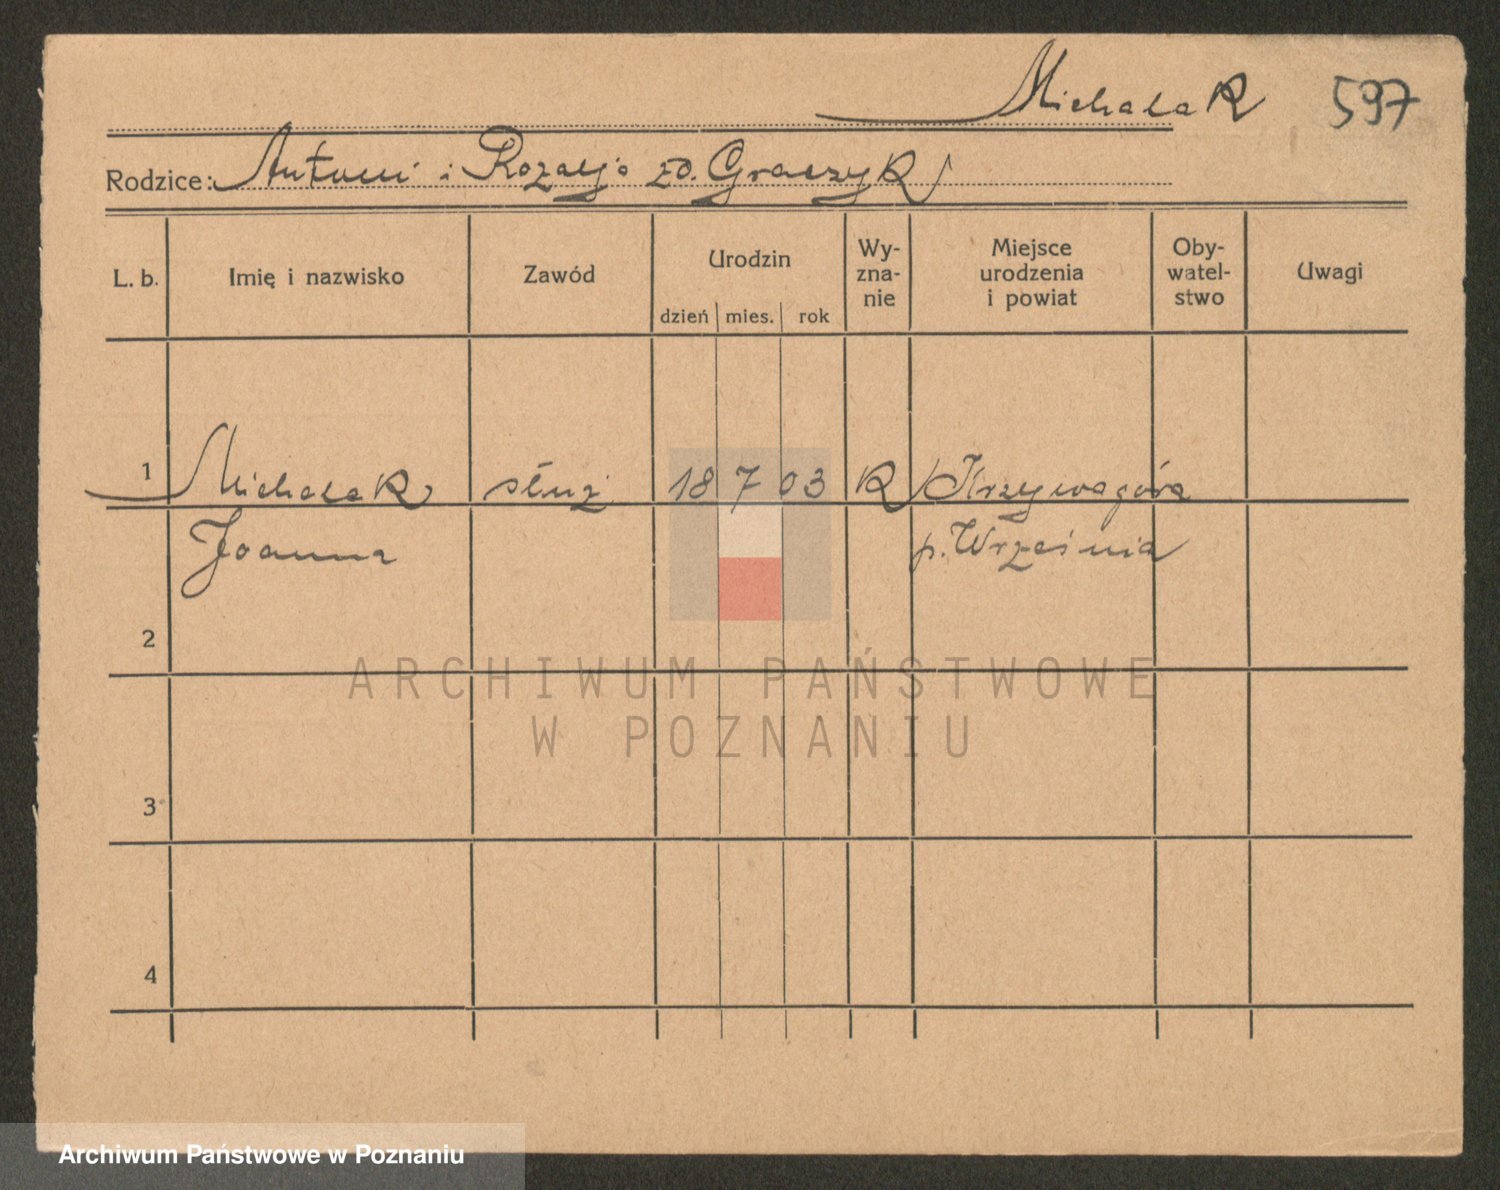 Michalak 597
Rodzice: Antoni i Rozalja zd. Graczyk
L. b. Imię i nazwisko Zawód Urodzin dzień mies. rok Wy-zna-nie Miejsce urodzenia i powiat Oby-watel-stwo Uwagi
1 Michalak służ 18 7 03 R Krzywagóra
Joanna p. Września
2
3
4
ARCHIWUM PAŃSTWOWE
W POZNANIU
Archiwum Państwowe w Poznaniu